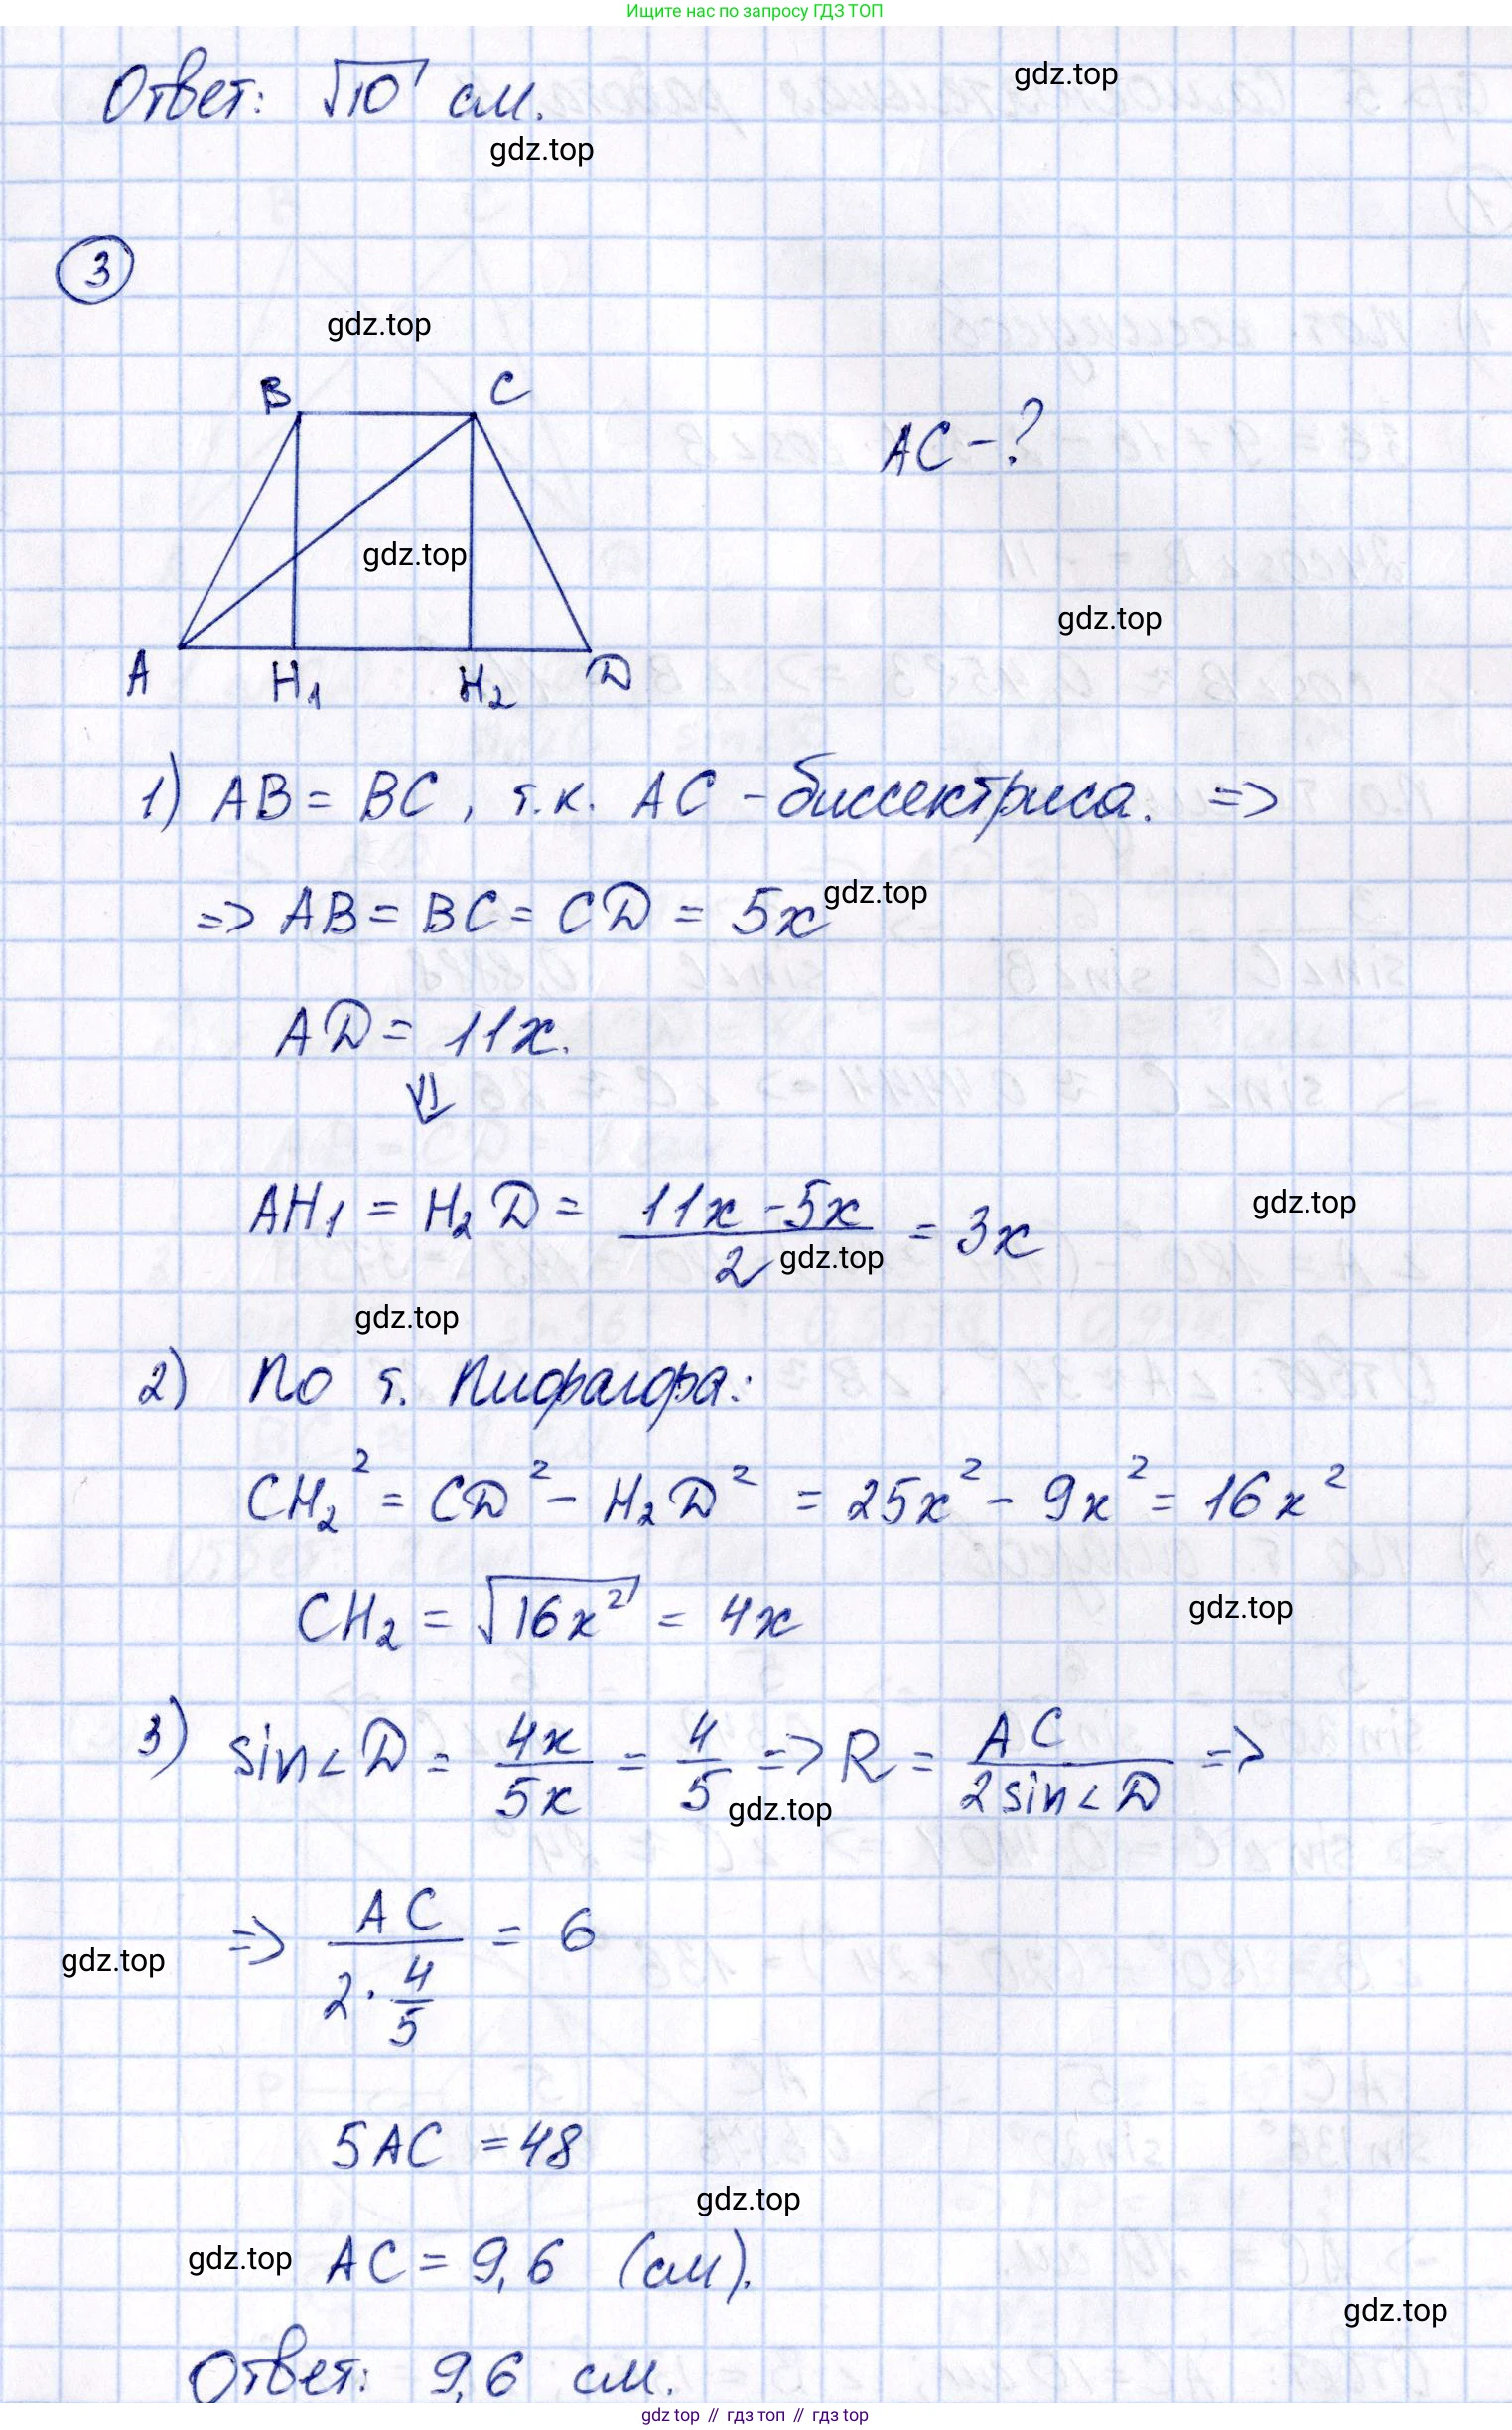 Ищите нас по запросу ГДЗ ТОП
Ответ: √10 см.
gdz.top
gdz.top
3
gdz.top
B C
AC - ?
gdz.top
gdz.top
A H₁ H₂ D
1) AB = BC, т.к. AC - биссектриса. =>
=> AB = BC = CD = 5x
gdz.top
AD = 11x.
⇓
AH₁ = H₂D = (11x - 5x)/2 = 3x
gdz.top
gdz.top
gdz.top
2) По т. Пифагора:
CH₂² = CD² - H₂D² = 25x² - 9x² = 16x²
CH₂ = √16x² = 4x
gdz.top
3) sin∠D = 4x/5x = 4/5 => R = AC/(2 sin∠D) =>
gdz.top
=> AC/(2·4/5) = 6
gdz.top
5AC = 48
gdz.top
gdz.top AC = 9,6 (см).
gdz.top
Ответ: 9,6 см.
gdz top // гдз топ // гдз top